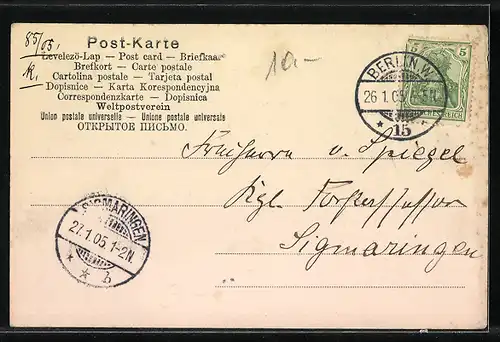 85/05.
Post-Karte
Levelező-Lap — Post card — Briefkaart
Brefkort — Carte postale
Cartolina postale — Tarjeta postal
Dopisnice — Karta Korespondencyjna
Correspondenzkarte — Dopisnica
Weltpostverein
Union postale universelle — Unione postale universale
ОТКРЫТОЕ ПИСЬМО.
10-
5 5
BERLIN W.
26 1.05.
* 15 *
Freiherrn v. Spiegel
Kgl. Forstassessor
Sigmaringen
SIGMARINGEN
27.1.05.1-2N.
* * b